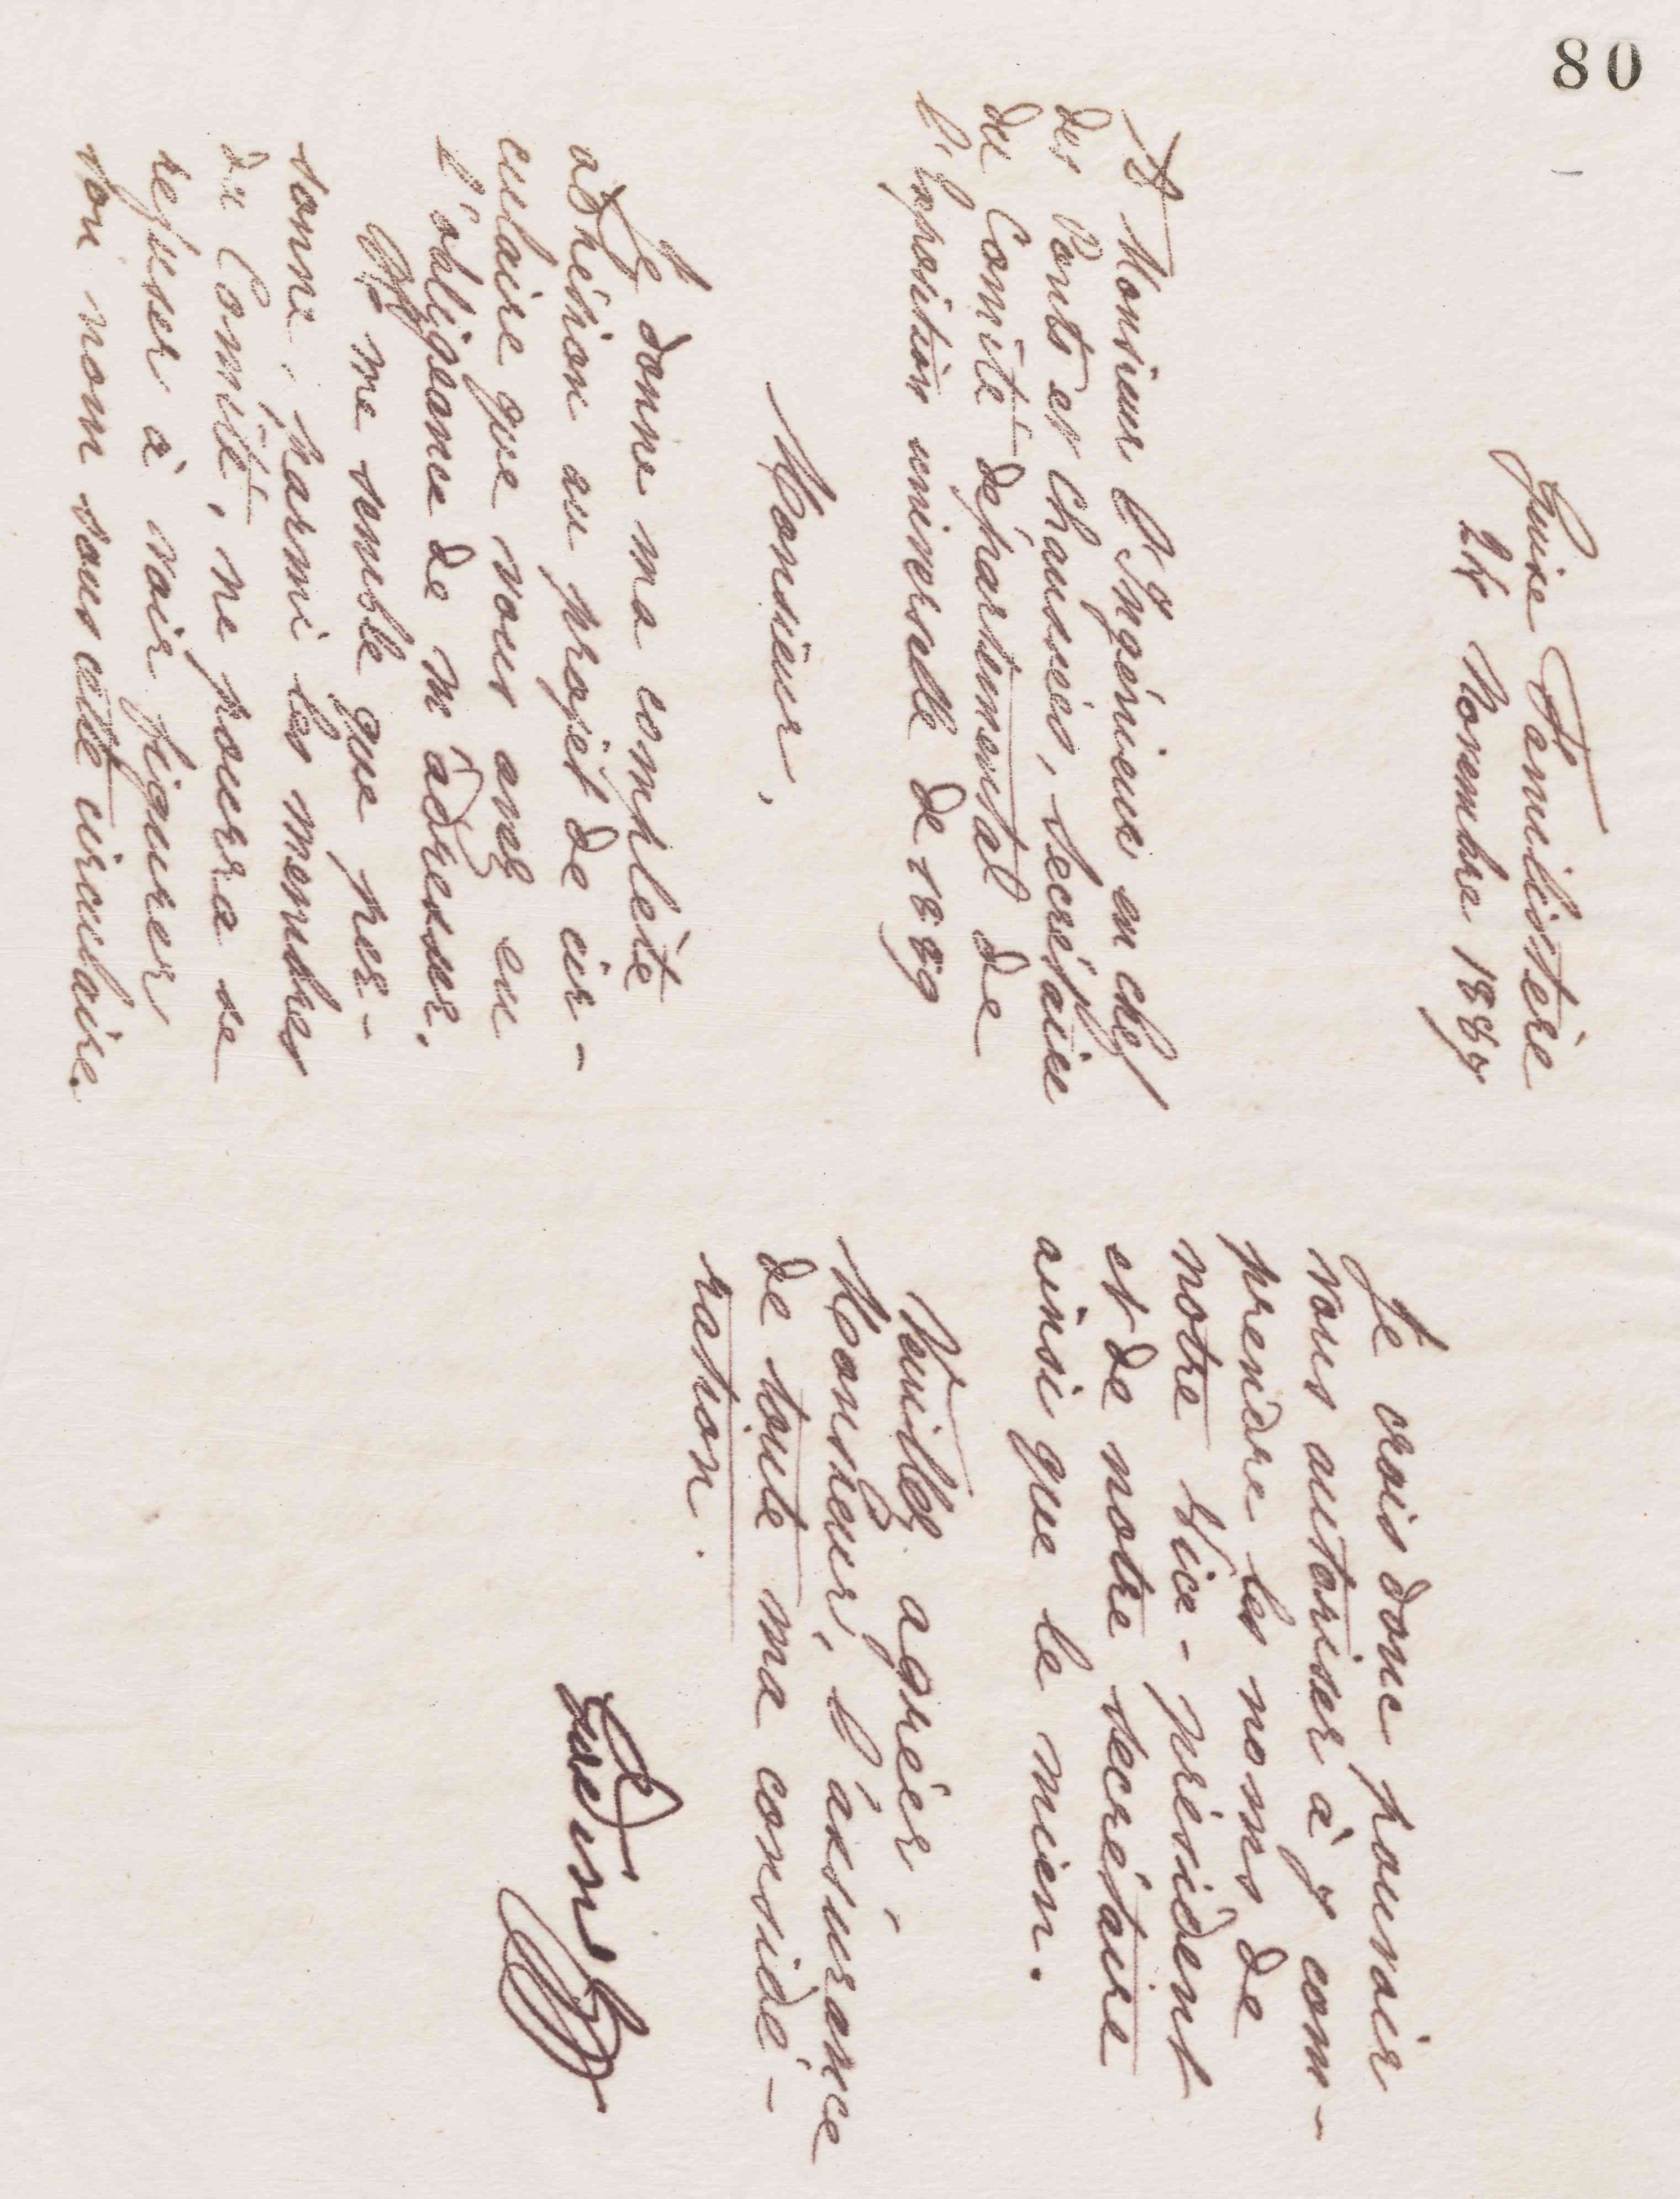 80
Guise Familistère
24 Novembre 1887
A Monsieur l'Ingénieur en chef
des Ponts et Chaussées, secrétaire
du Comité départemental de
l'Exposition universelle de 1889
Monsieur,
Je donne ma complète
adhésion au projet de cir-
culaire que vous avez eu
l'obligeance de m'adresser.
Il me semble que per-
sonne, parmi les membres
du Comité, ne pourra se
refuser à voir figurer
son nom sous cette circulaire.
Je crois donc pouvoir
vous autoriser à y com-
prendre les noms de
notre Vice-président
et de notre secrétaire
ainsi que le mien.
Veuillez agréer,
Monsieur, l'assurance
de toute ma considé-
ration.
Godin